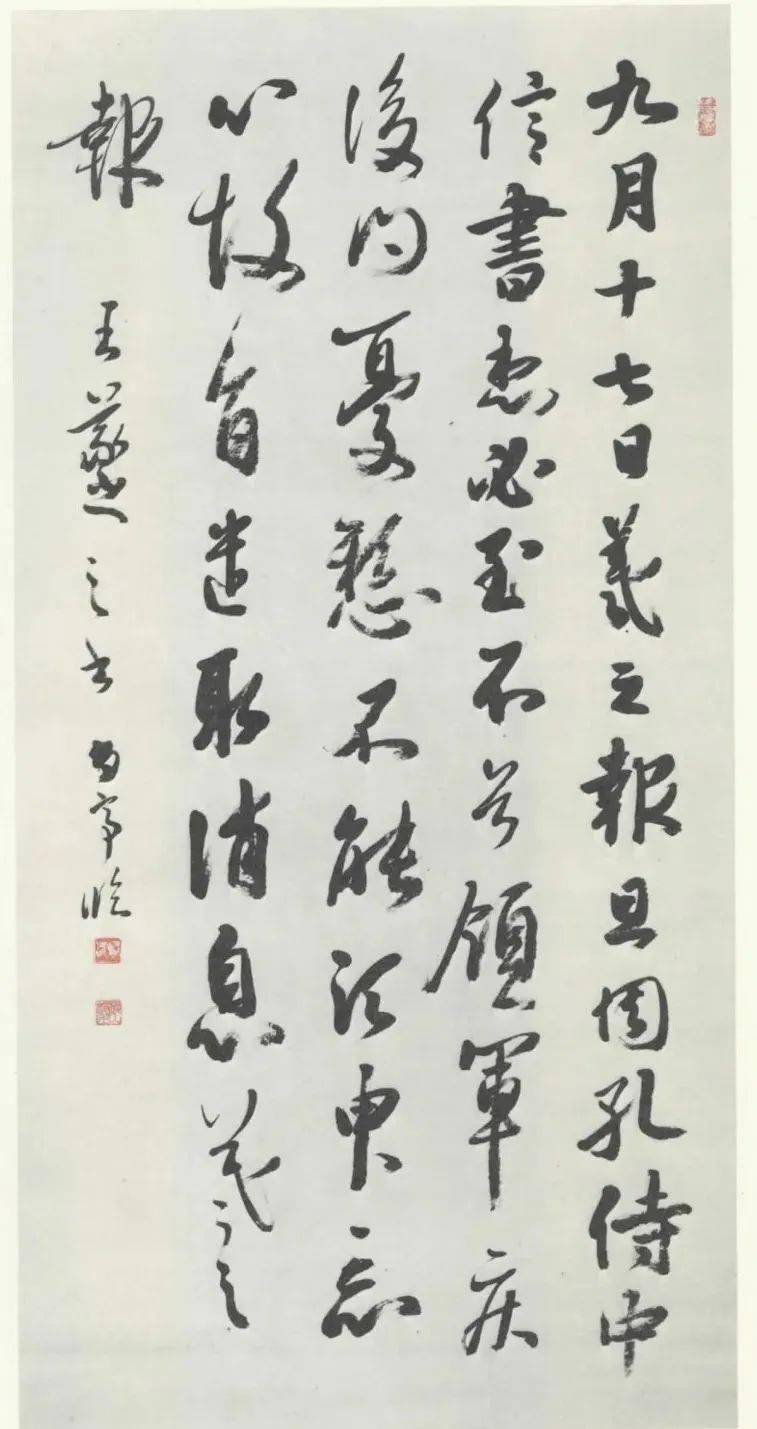 九月十七日羲之報且因孔侍中
信書想必至不知領軍疾
後問憂懸不能須臾忘
心故旨遣取消息羲之
報 王羲之書 亭臨